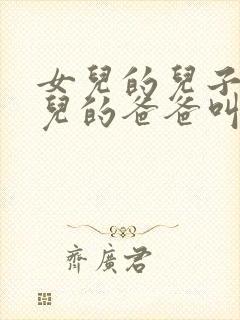 女兒的兒子
兒的爸爸叫
齊廣君